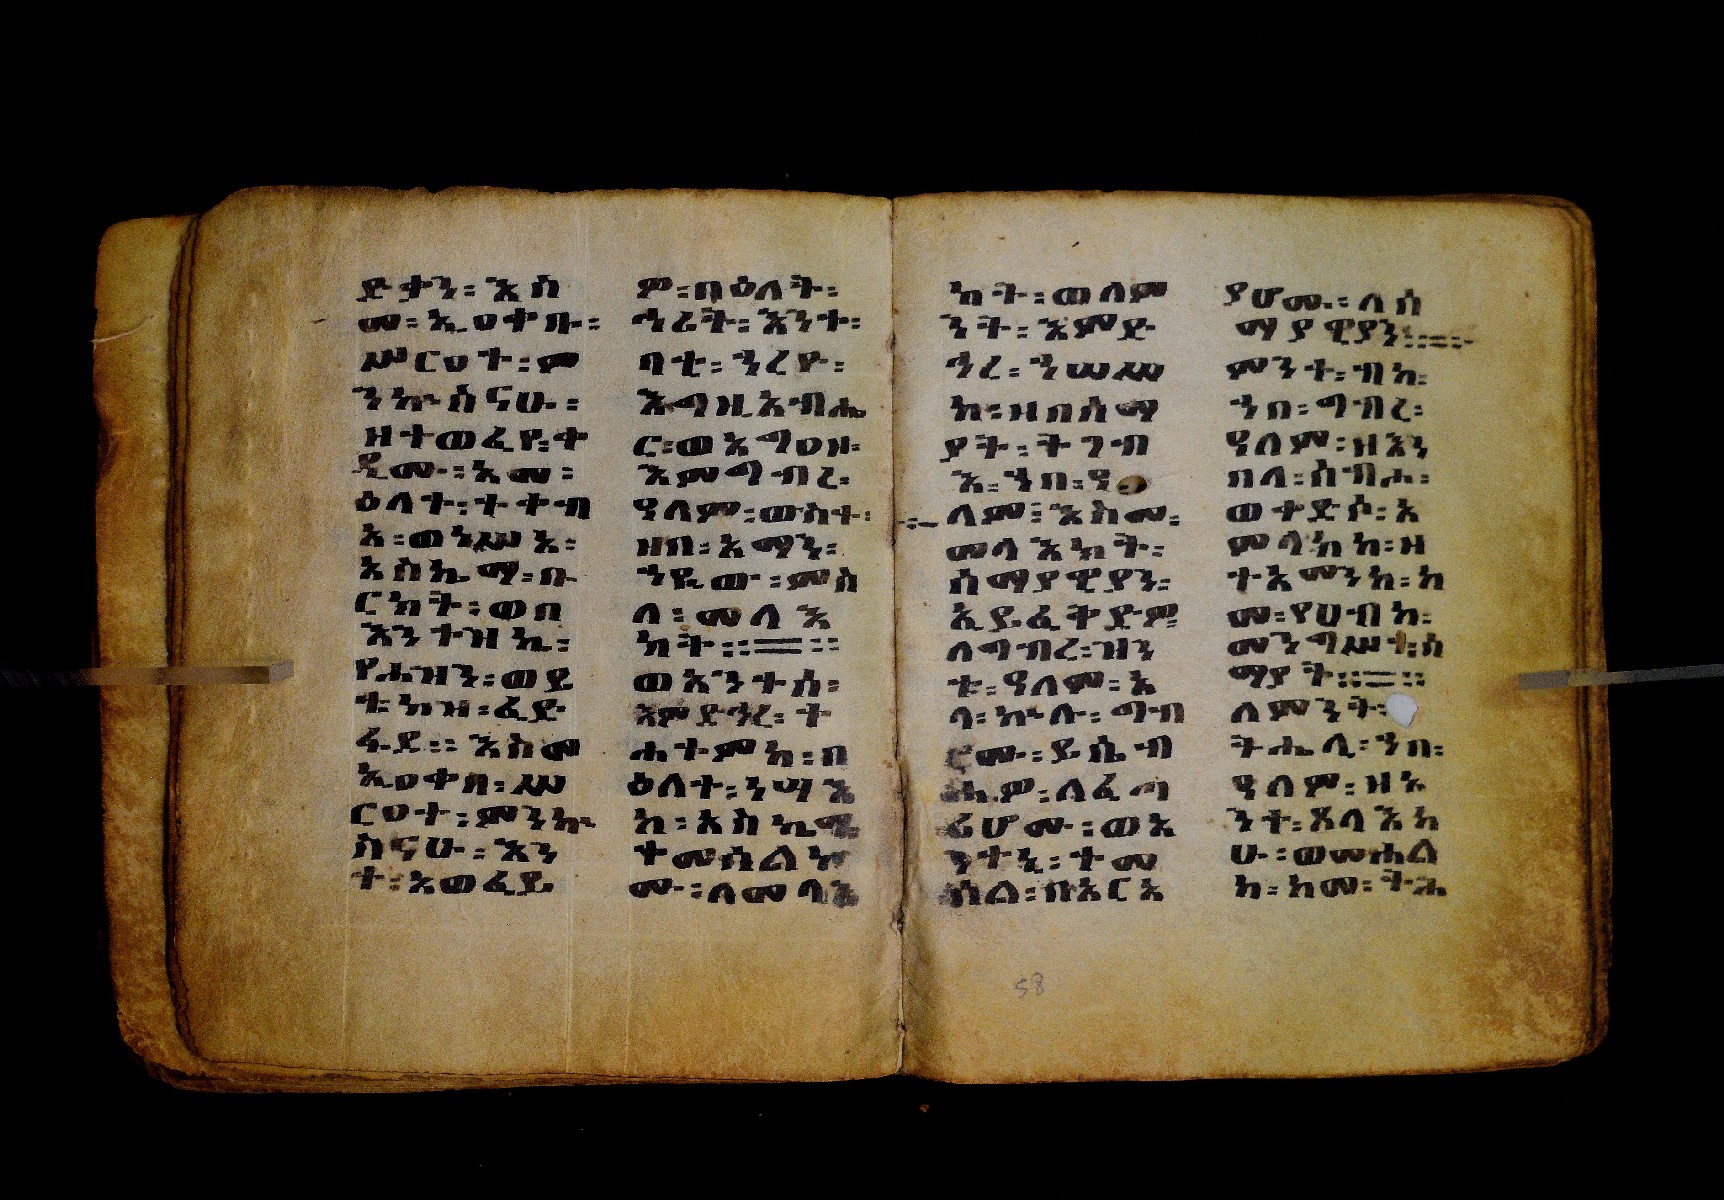 ድቀን፡ እስ
መ፡ ኢሀቀበ፡
ሥርዐተ፡ ም
ንኵስናሁ፡
ዘተወፈየ፡ ቀ
ዲሙ፡ አመ፡
ዕለተ፡ ተቀብ
አ፡ ወነሥአ፡
አስኬማ፡ በ
ርከት፡ ወበ
እንተዝ፡
የሐዝን፡ ወይ
ቴክዝ፡ ፈድ
ፋደ፡፡ እስመ
ኢሀቀበ፡ ሥ
ርዐተ፡ ምንኵ
ስናሁ፡ እን
ተ፡ አወፈይ
ም፡ በዕለት፡
ኀሪት፡ እንተ፡
ባቲ፡ ንረዮ፡
ለእግዚአብሔ
ር፡ ወአግዐዘ፡
እምግብረ፡
ዓለም፡ ውስተ፡
ዘበ፡ አማን፡
ኀዪው፡ ምስ
ለ፡ መላእ
ክት፡፡
ወእንተሰ፡
እምድኅረ፡ ት
ሐተምከ፡ በ
ዕለተ፡ ነሣእ
ከ፡ አስኬማ፡
ተመሰልኮ
ሙ፡ ለመላእ
ክት፡ ወለም
ንት፡ እምድ
ኅረ፡ ነሣእ
ከ፡ ዘበሰማ
ያት፡ ትገብ
እ፡ ኀበ፡ ዓ
ለም፡ እስመ፡
መላእክት፡
ሰማያዊያን፡
ኢይፈቅድዎ
ለግብረ፡ ዝን
ቱ፡ ዓለም፡ አ
ላ፡ ኵሉ፡ ግብ
ሮሙ፡ ይሴብ
ሕዎ፡ ለፈጣ
ሪሆሙ፡ ወአ
ንተኒ፡ ተመ
ሰል፡ በአርአ
ያሆሙ፡ ለሰ
ማያዊያን፡፡
ምንት፡ ብከ፡
ኀበ፡ ግብረ፡
ዓለም፡ ዘእን
በለ፡ ሰብሖ፡
ወቀድሶ፡ አ
ምላክከ፡ ዘ
ተአመንከ፡ ከ
መ፡ የሀብከ፡
መንግሥተ፡ ሰ
ማያት፡፡
ለምንት፡
ትሔሊ፡ ኀበ፡
ዓለም፡ ዘአ
ንተ፡ ጸላእከ
ሁ፡ ወመሐል
ከ፡ ከመ፡ ትሑ
58